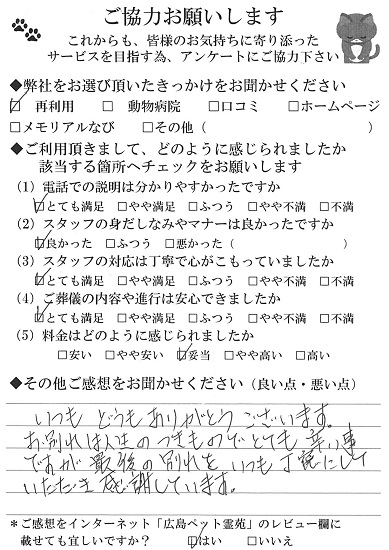 ご協力お願いします
これからも、皆様のお気持ちに寄り添った
サービスを目指す為、アンケートにご協力下さい
◆弊社をお選び頂いたきっかけをお聞かせください
☑再利用 □動物病院 □口コミ □ホームページ
□メモリアルなび □その他（ ）
◆ご利用頂きまして、どのように感じられましたか
該当する箇所へチェックをお願いします
（1）電話での説明は分かりやすかったですか
☑とても満足 □やや満足 □ふつう □やや不満 □不満
（2）スタッフの身だしなみやマナーは良かったですか
☑良かった □ふつう □悪かった（ ）
（3）スタッフの対応は丁寧で心がこもっていましたか
☑とても満足 □やや満足 □ふつう □やや不満 □不満
（4）ご葬儀の内容や進行は安心できましたか
☑とても満足 □やや満足 □ふつう □やや不満 □不満
（5）料金はどのように感じられましたか
□安い □やや安い ☑妥当 □やや高い □高い
◆その他ご感想をお聞かせください（良い点・悪い点）
いつも どうもありがとう ございます。
お別れは人生のつきものでとても 辛い事
ですが 最後の別れを いつも丁寧にして
いただき 感謝しています。
＊ご感想をインターネット「広島ペット霊苑」のレビュー欄に
載せても宜しいですか？ ☑はい □いいえ